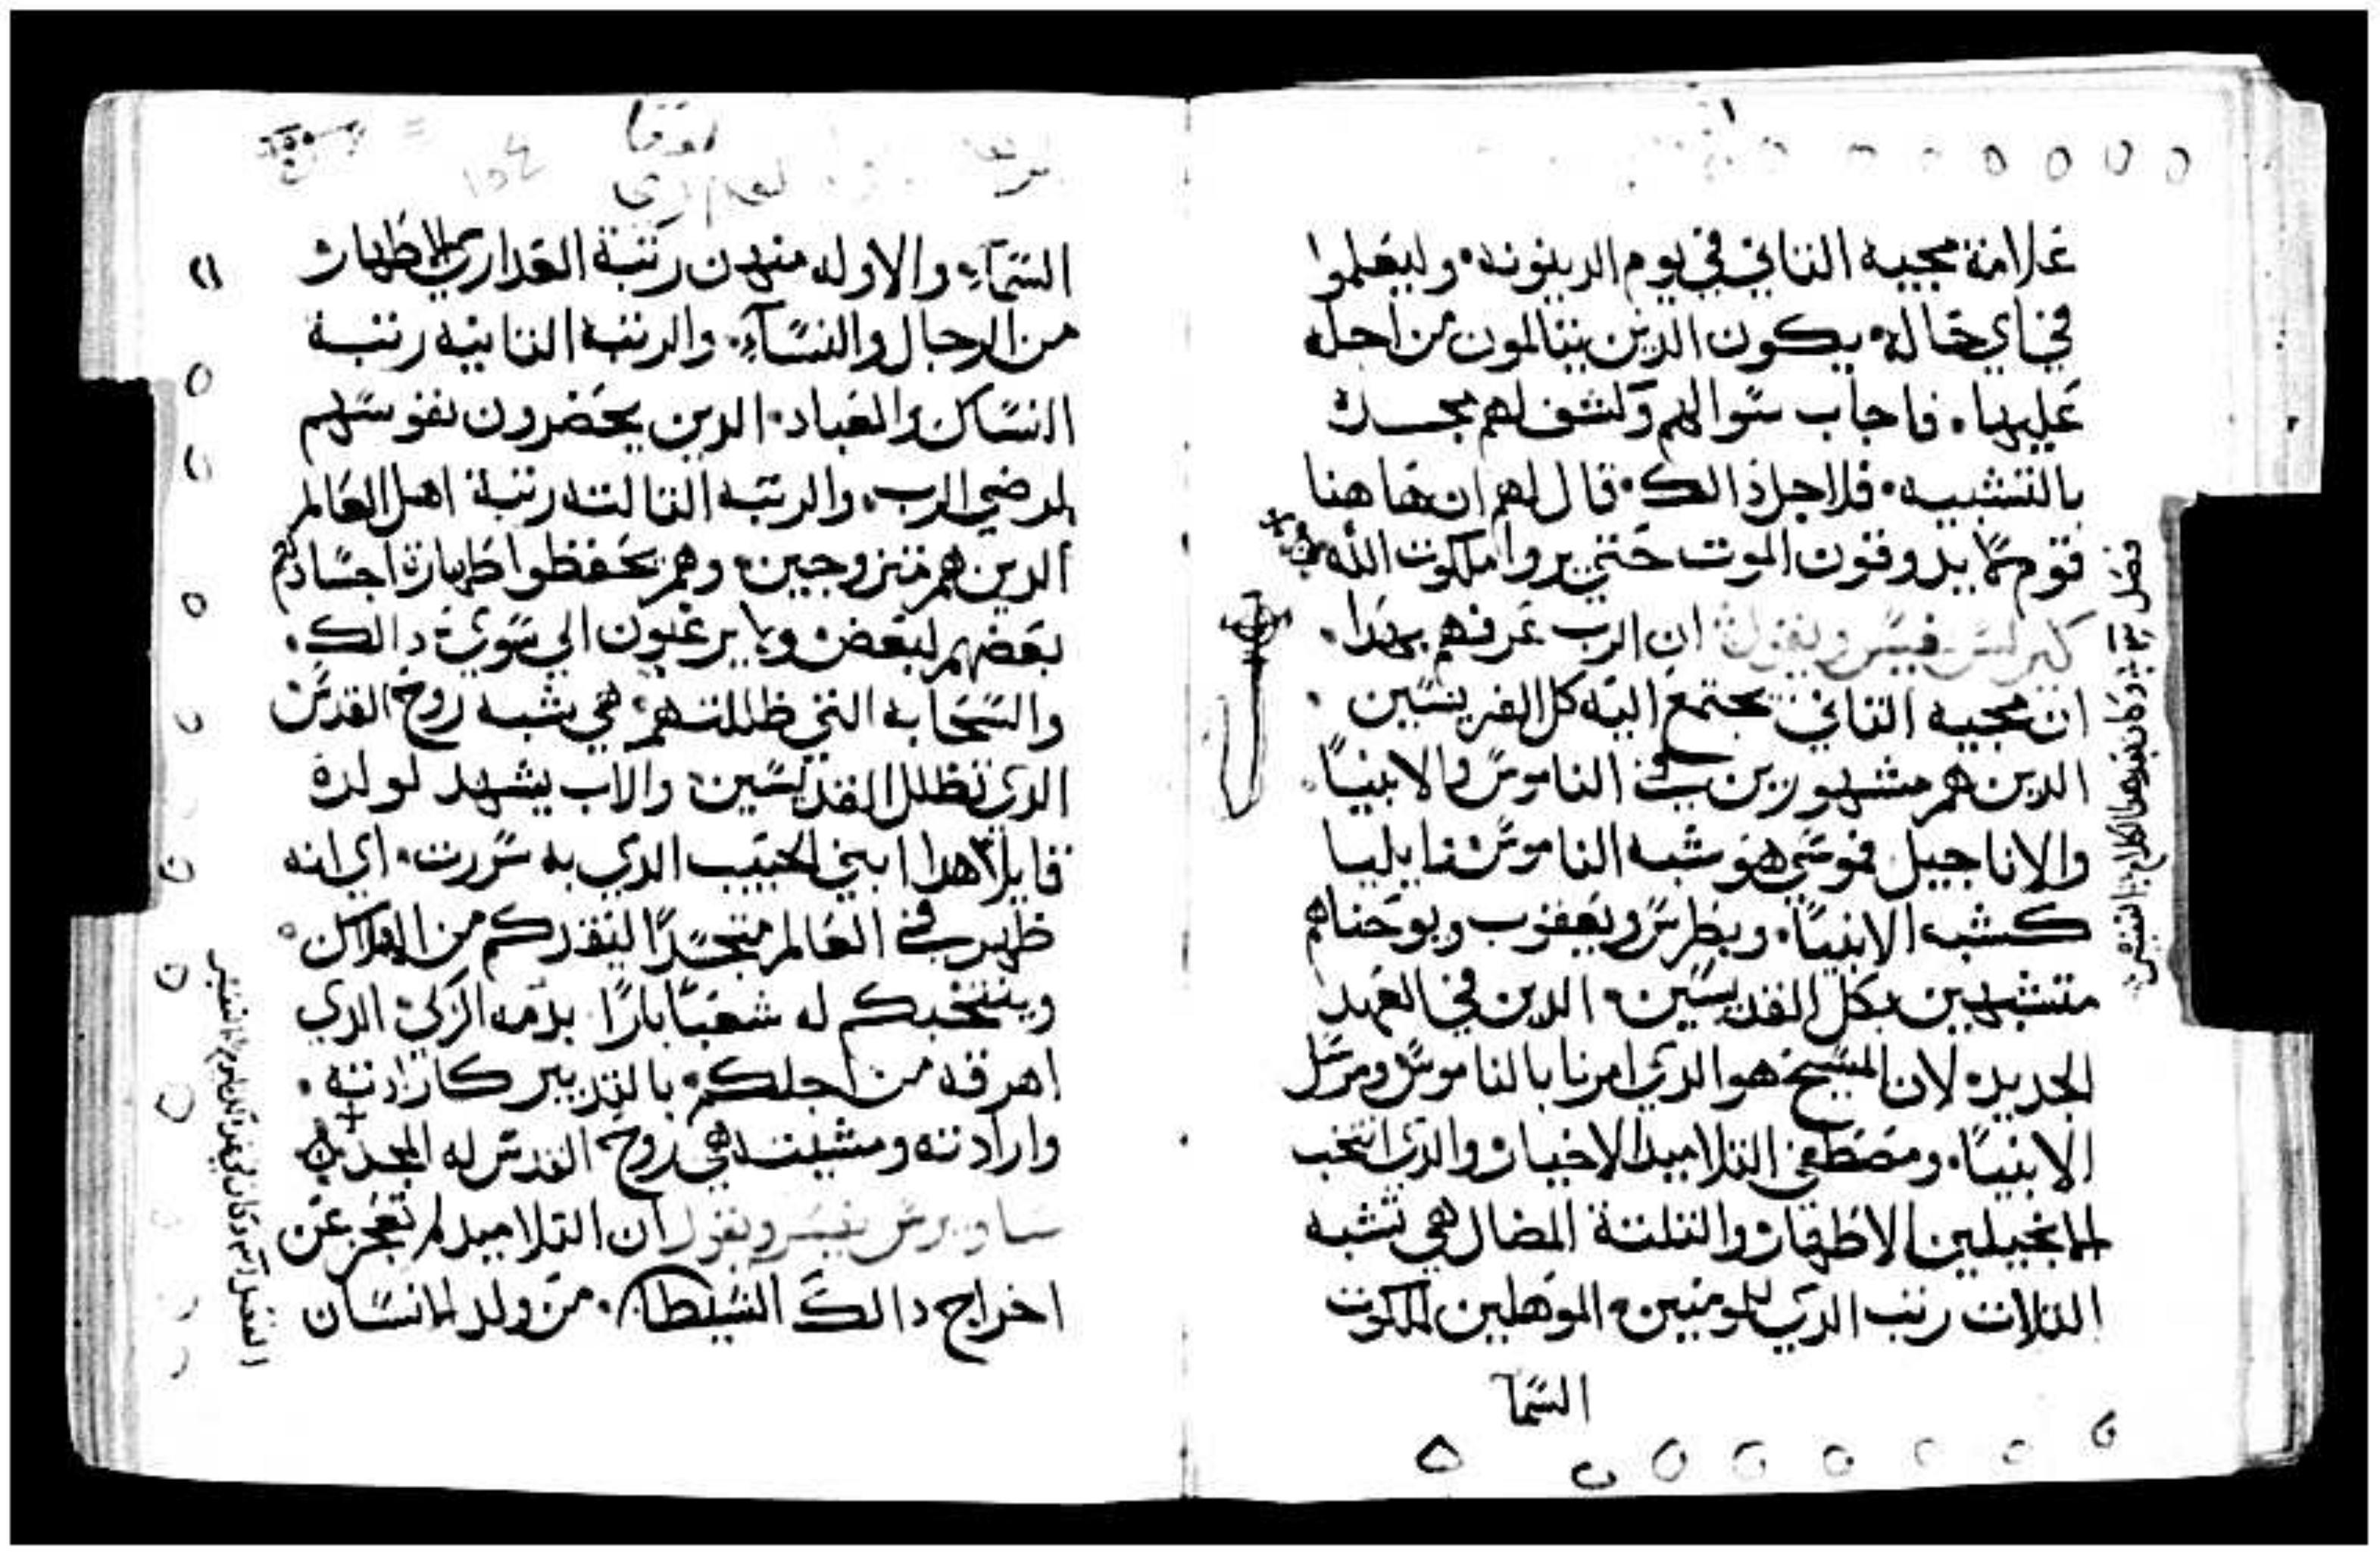 علامة مجيه التاني في يوم الدينونه. وليعلموا
في اي حاله يكون الدين يتالمون من اجله
عليها. فاجاب سوالهم وكشف لهم مجده
بالتشبيه. فلاجل دالك. قال لهم ان هاهنا
قوم لا يدوقون الموت حتي يروا ملكوت الله
كيرلس فيسر ويقول ان الرب عرفهم بهدا.
ان مجيه التاني يجتمع اليه كل القديسين.
الدين هم مشهورين في الناموس والانبيا.
والاناجيل فموسي هو شبه الناموس وايليا
كشبه الانبيا. وبطرس ويعقوب ويوحنا هم
متشبهين بكل القديسين. الدين في العهد
الجديد. لان المسيح هو الدي امرنا بالناموس ومرسل
الانبيا. ومصطفي التلاميد الاخيار والدي انتخب
الانجيليين الاطهار والتلتة المضال هي تشبه
التلات رتب الدي للومنين. الموهلين لملكوت
السما
فصل
لوقا
السماء. والاوله منهن رتبة العداري الاطهار
من الرجال والنساء. والرتبه التانيه رتبة
النساك والعباد. الدين يحضرون نفوسهم
لمرضي الرب. والرتبه التالته رتبة اهل العالم
الدين هم متزوجين. وهم يحفظوا طهارة اجسادهم
بعضهم لبعض ولا يرغبون الي سوي دالك.
والسحابه التي ظللتهم. هي شبه روح القدس
الدي تظلل القديسين والاب يشهد لولده
قايلا هدا ابني الحبيب الدي به سررت. اي انه
ظهر في العالم متجسدا لينقدكم من الهلاك
وينتخبكم له شعبا بارا بدمه الزكي الدي
اهرقه من اجلكم. بالتدبير كارادته.
وارادته ومشيته هي روح القدس له المجد
ساويرس يفسر ويقول ان التلاميد لم تعجز عن
اخراج دالك الشيطان. من ولد الانسان